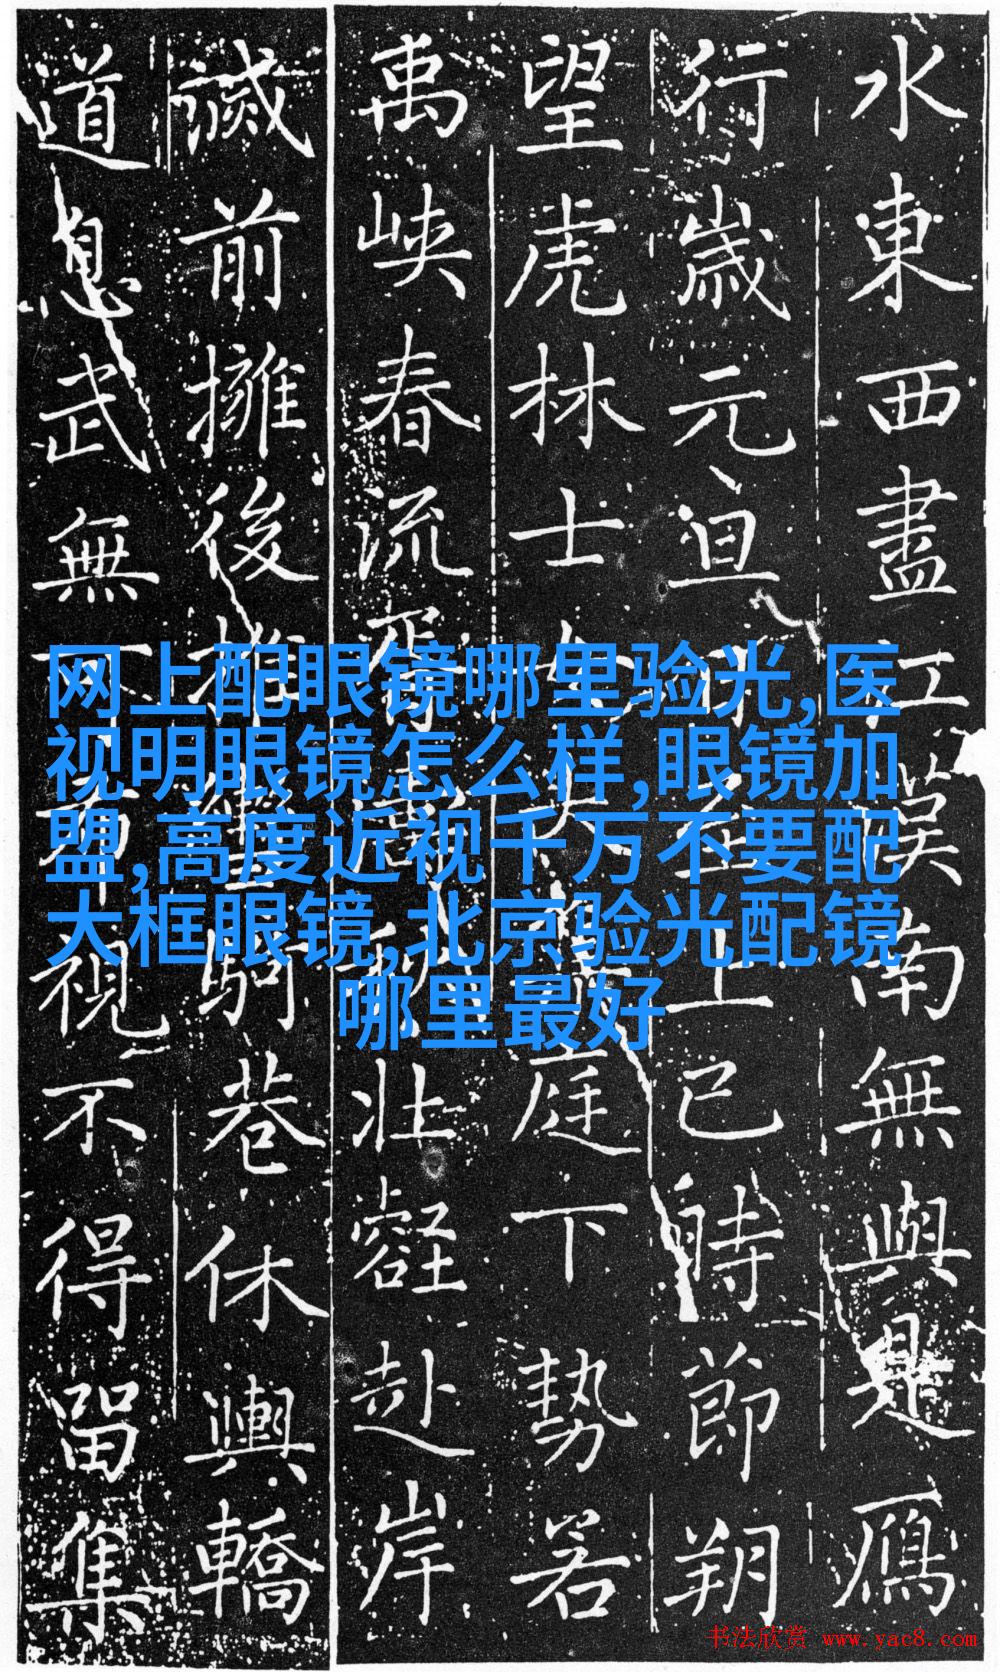 水東西盡江漢南無與是鴈
行歲元旦上巳時節朔
望虎林士女大庭下勢若
禹峽春流壯赴岸
前擁後駒巷休輿轎
道息武無視不得留集
网上配眼镜哪里验光,医
视明眼镜怎么样,眼镜加
盟,高度近视千万不要配
大框眼镜,北京验光配镜
哪里最好
书法欣赏 www.yac8.com